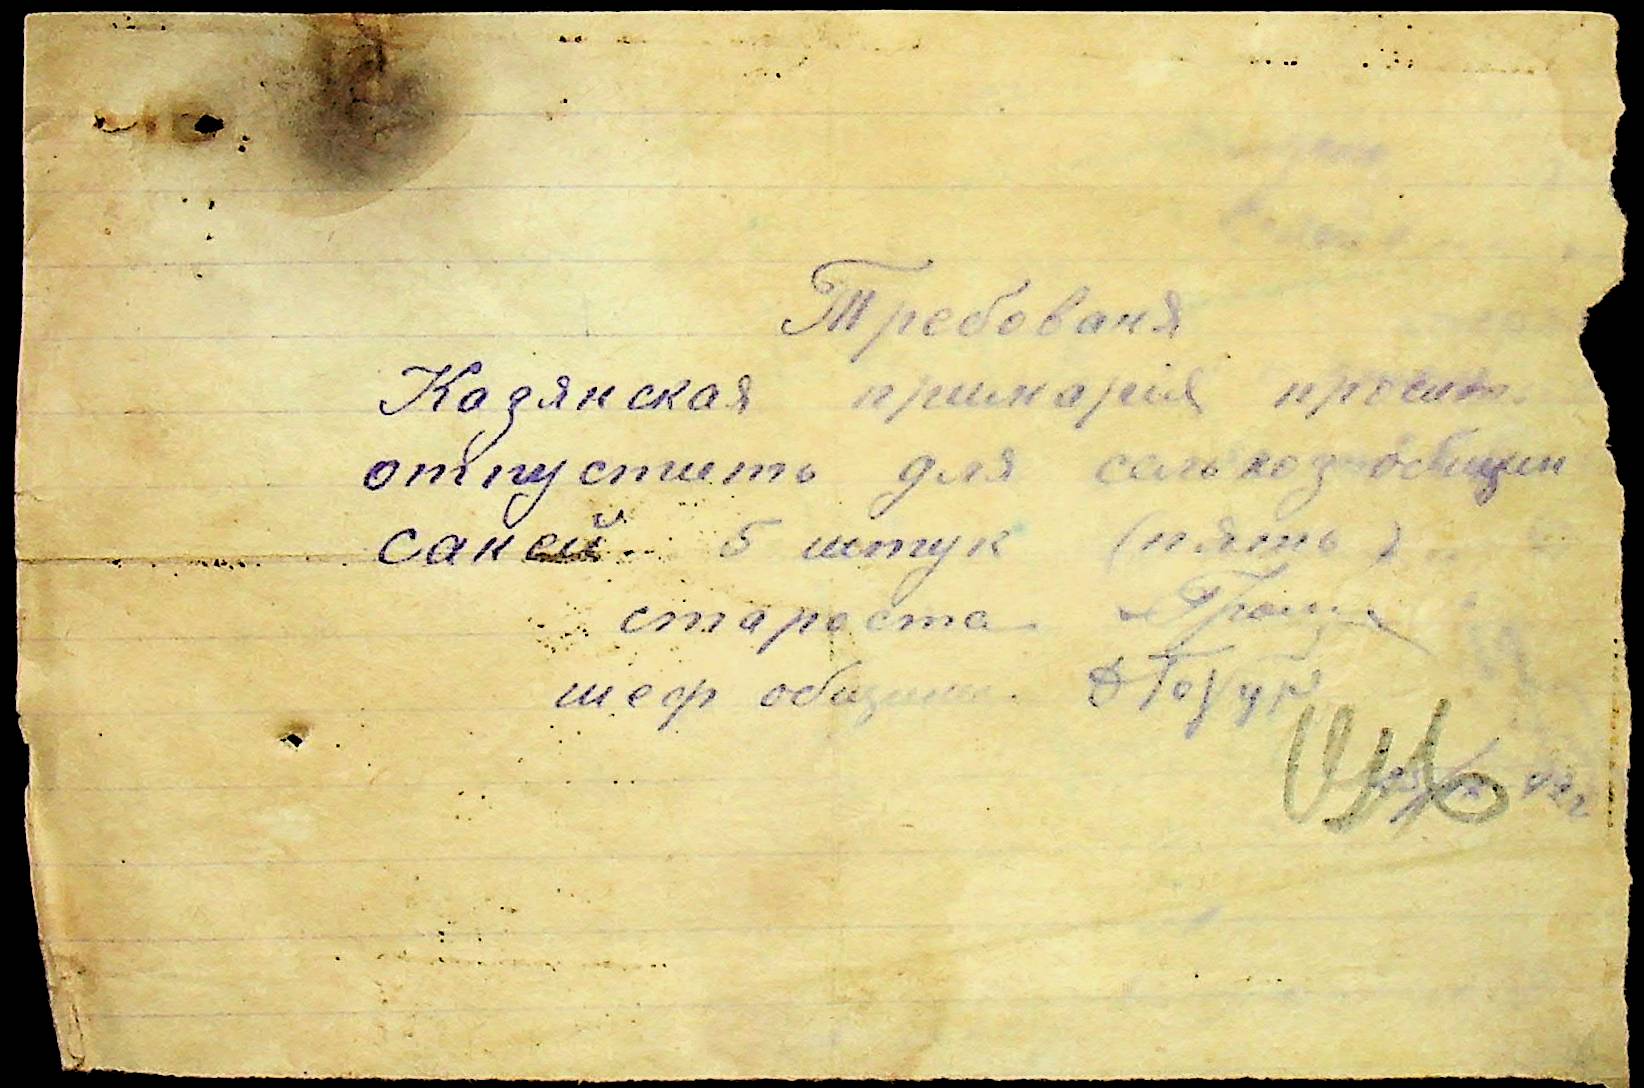 Требованя
Козянская примарія просит
отпустить для сельхоз общин
саней 5 штук (пять)
староста
шеф общины
42 г